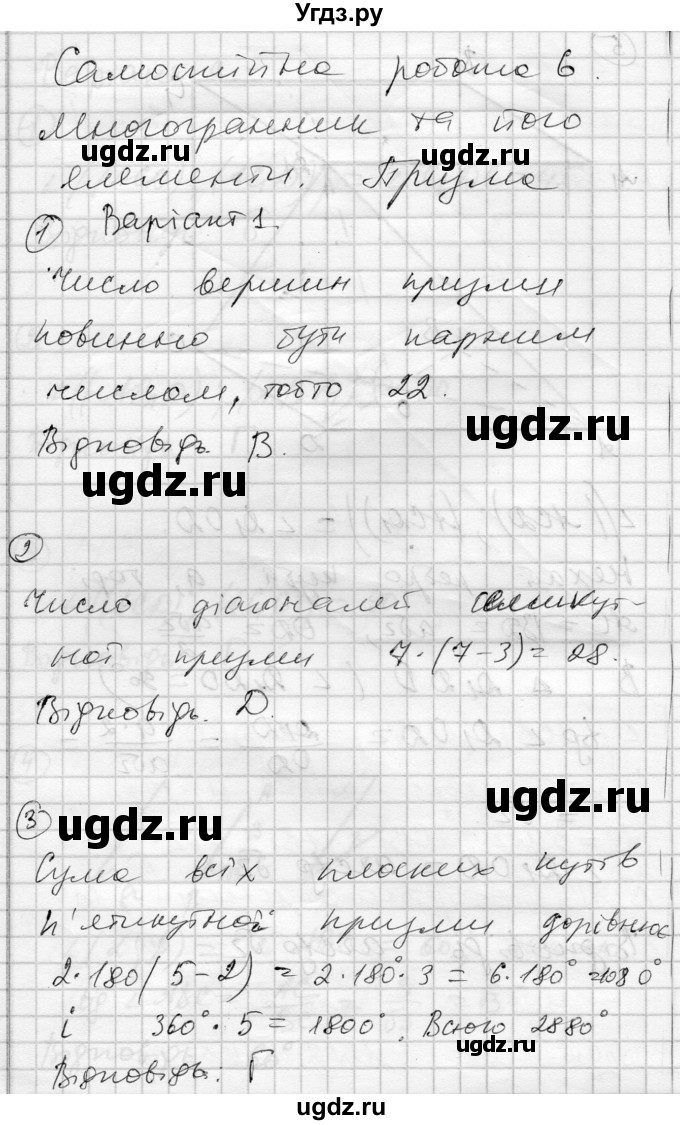 Угдз.ру
Самостійна робота 6.
Многогранник та його
ugdz.ru ugdz.ru
елементи. Призма
① Варіант 1.
Число вершин призми
повинно бути парним
числом, тобто 22.
ugdz.ru
Відповідь. В.
ugdz.ru
②
Число діагоналей семикут-
ної призми 7·(7-3)=28.
Відповідь. D.
ugdz.ru
③ ugdz.ru
Сума всіх плоских кутів
п'ятикутної призми дорівнює
2·180(5-2)=2·180°·3=6·180°=1080°
і 360°·5=1800°. Всього 2880°
ugdz.ru
Відповідь: Г
ugdz.ru